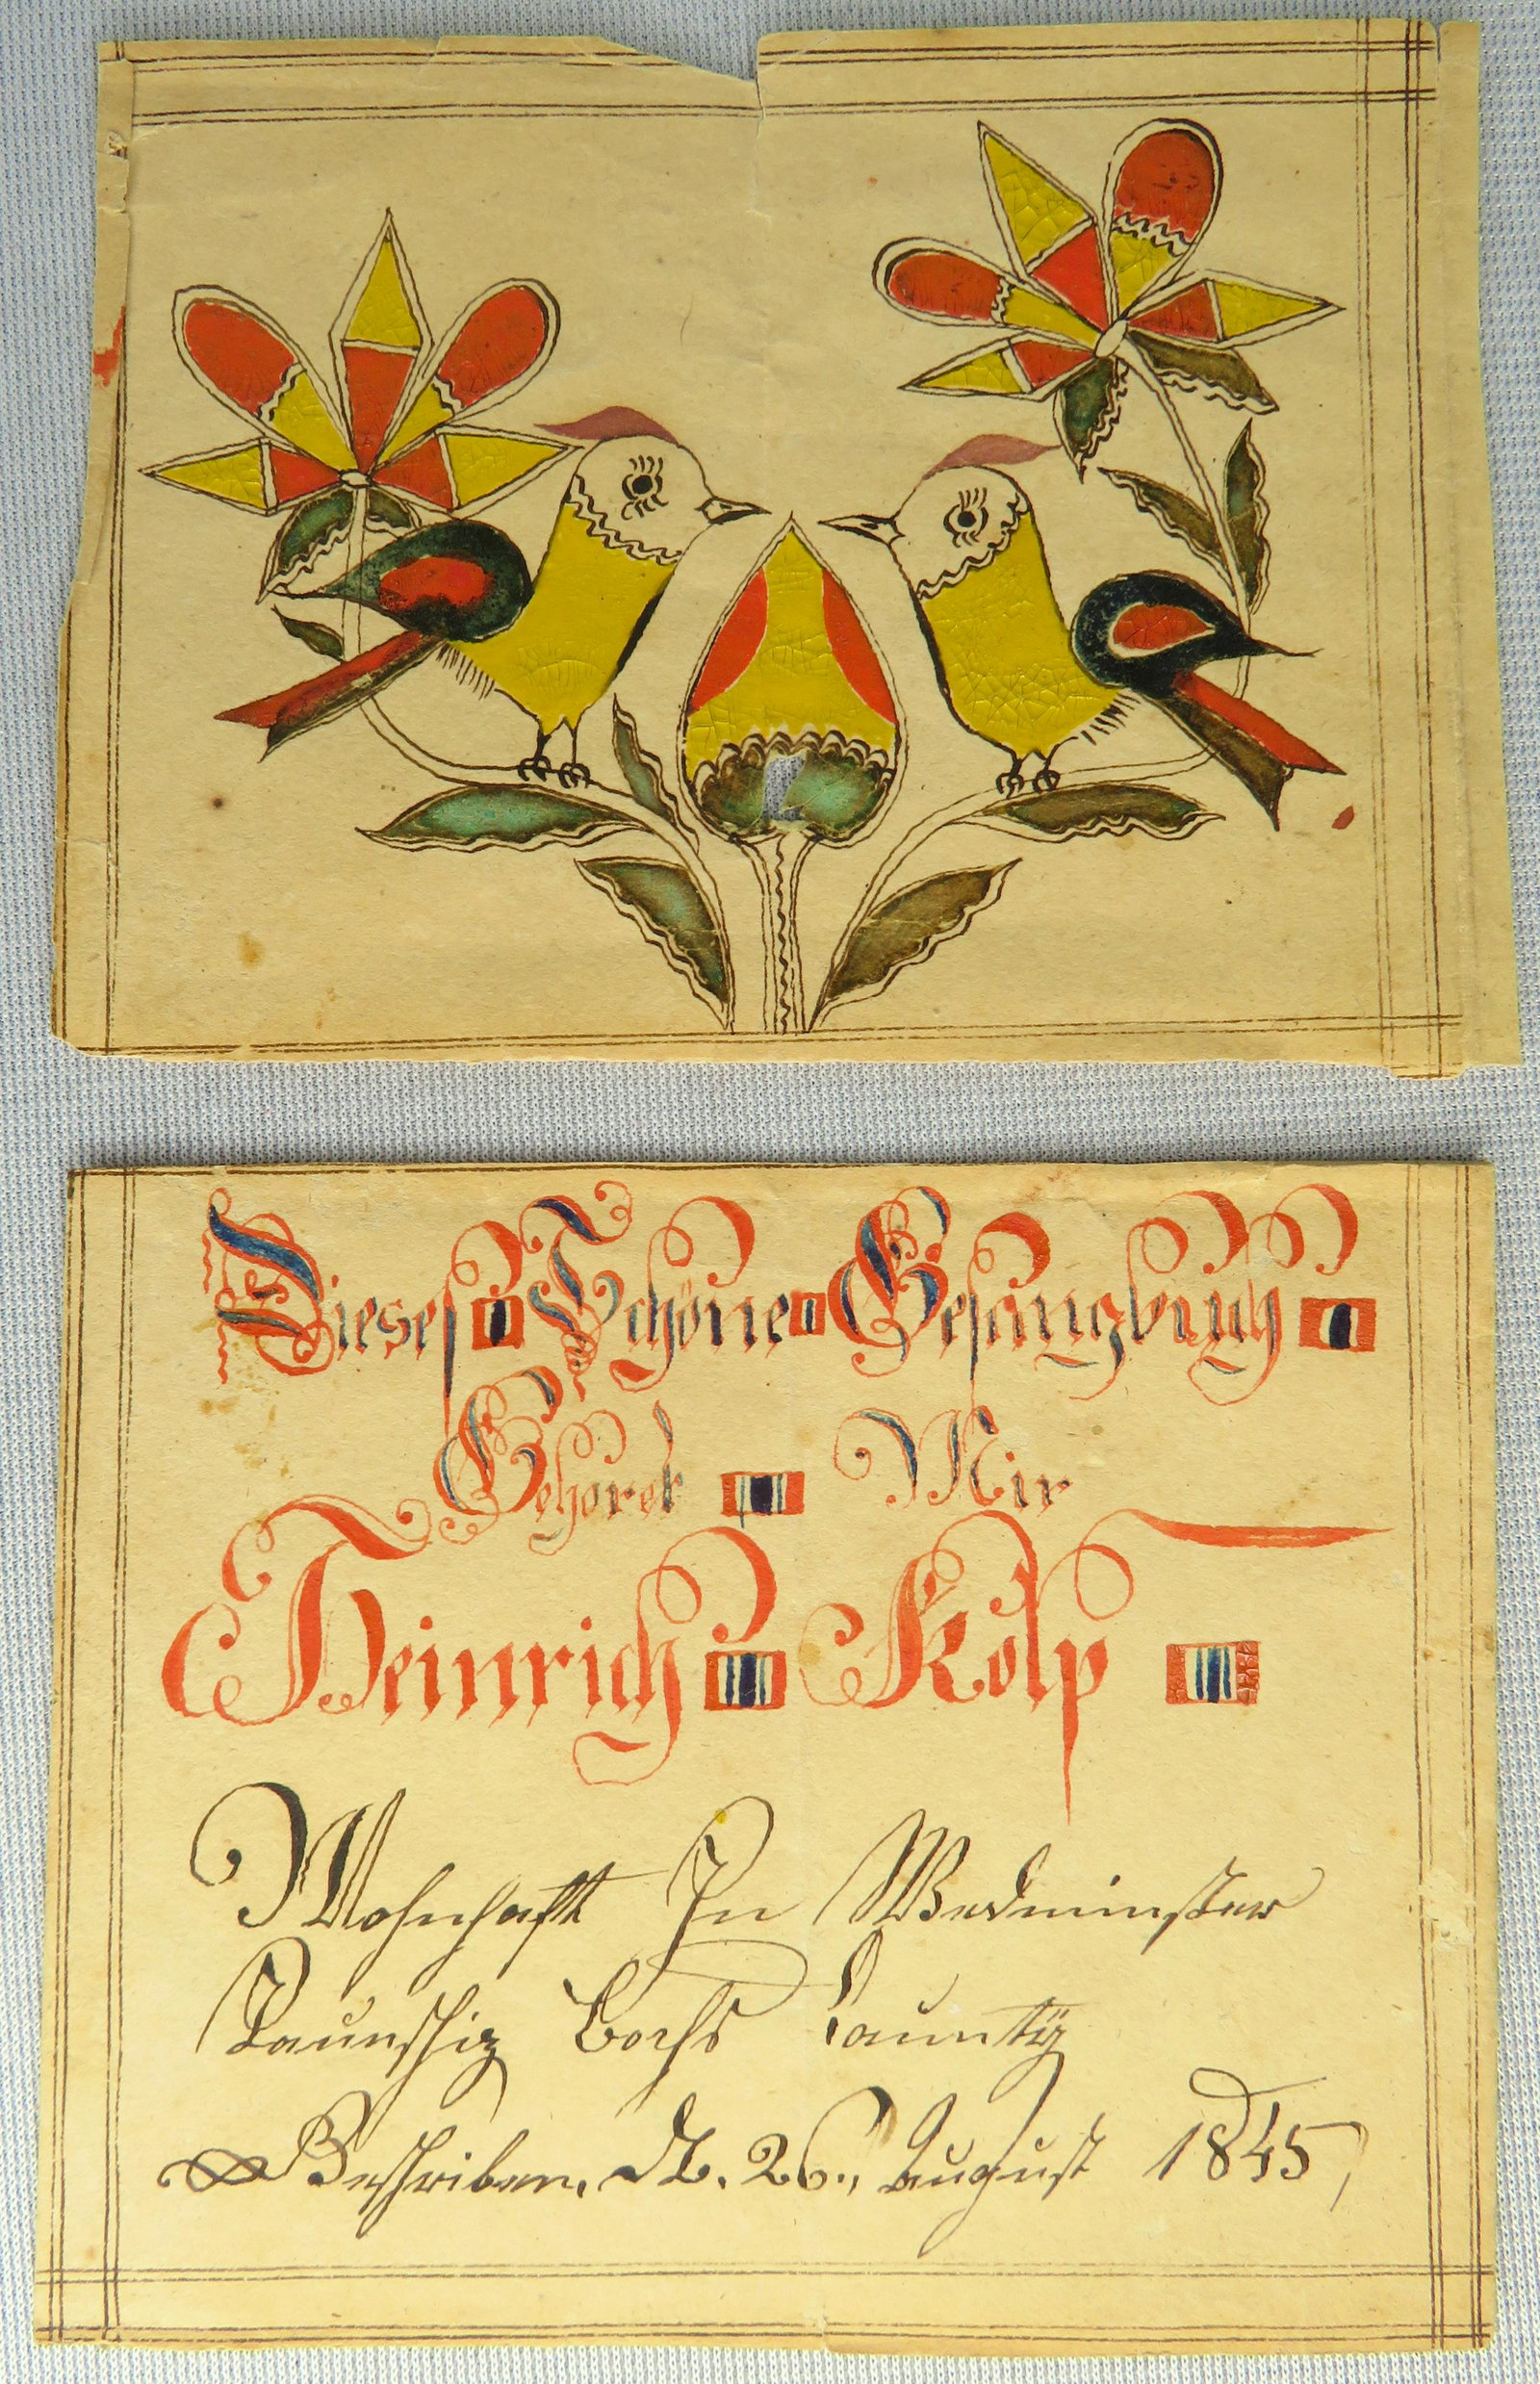 Dieses Schöne Gesangbuch
Gehöret Mir
Heinrich Kolp
Wohnhaft In Bedminster
Taunschip Bocks Caunty
Geschriben, D. 26., August 1845